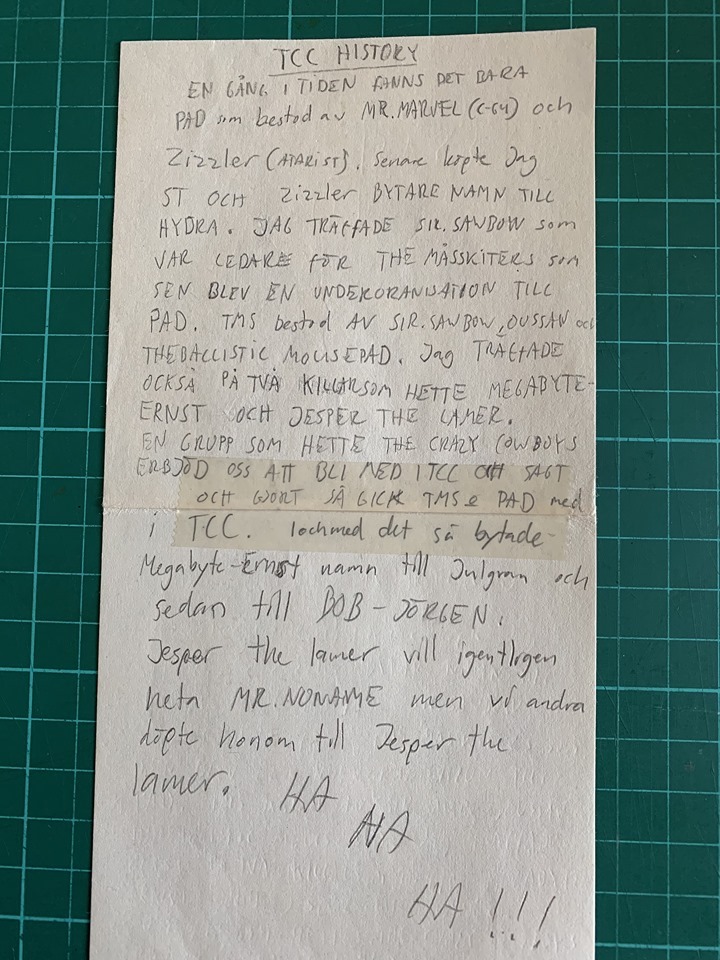 TCC HISTORY
EN GÅNG I TIDEN FANNS DET BARA
PAD som bestod av MR.MARVEL (C-64) och
Zizzler (ATARI ST). Senare köpte Jag
ST OCH Zizzler BYTARE NAMN TILL
HYDRA. JAG TRÄFFADE SIR.SAWBOW som
VAR LEDARE FÖR THE MÅSSKITERS som
SEN BLEV EN UNDERORANISATION TILL
PAD. TMS bestod AV SIR.SAWBOW, OUSSAN och
THEBALLISTIC MOUSEPAD. Jag TRÄFFADE
OCKSÅ PÅ TVÅ KILLAR SOM HETTE MEGABYTE-
ERNST OCH JESPER THE LAMER.
EN GRUPP SOM HETTE THE CRAZY COWBOYS
ERBJÖD OSS ATT BLI MED I TCC OCH SAGT
OCH GJORT SÅ GICK TMS & PAD med
i TCC. I och med det så bytade
Megabyte-Ernst namn till Julgran och
sedan till BOB-JÖRGEN.
Jesper the lamer vill igentligen
heta MR.NONAME men vi andra
döpte honom till Jesper the
lamer. HA
HA
HA!!!